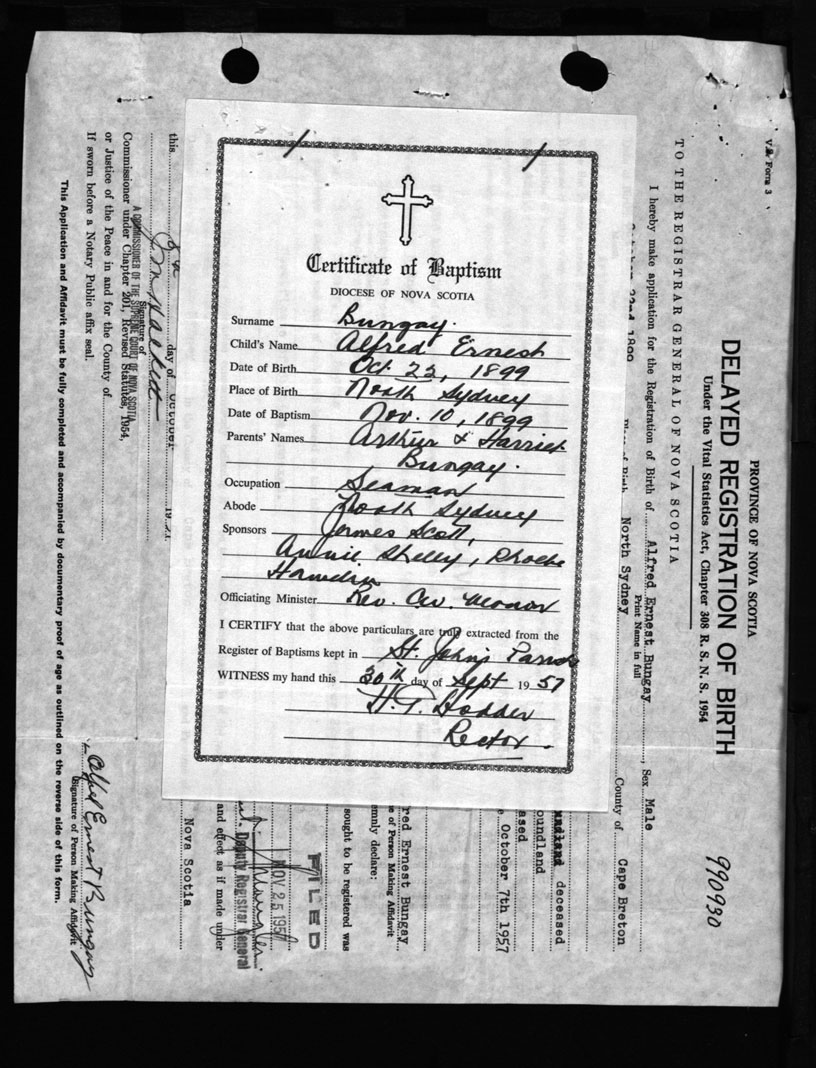 Certificate of Baptism
DIOCESE OF NOVA SCOTIA
Surname Bungay.
Child's Name Alfred Ernest
Date of Birth Oct 22, 1899
Place of Birth North Sydney
Date of Baptism Nov. 10, 1899
Parents' Names Arthur & Harriet
Bungay.
Occupation Seaman
Abode North Sydney
Sponsors James Scott,
Annie Shelly, Phoebe
Officiating Minister Rev.
I CERTIFY that the above particulars are truly extracted from the
Register of Baptisms kept in St. John's Parish
WITNESS my hand this 30th day of Sept 1957
H. T. Hodder
Rector.
V.S. Form 3
990930
PROVINCE OF NOVA SCOTIA
DELAYED REGISTRATION OF BIRTH
Under the Vital Statistics Act, Chapter 308 R. S. N. S. 1954
TO THE REGISTRAR GENERAL OF NOVA SCOTIA
I hereby make application for the Registration of Birth of Alfred Ernest Bungay, Sex Male
Print Name in full
October 22nd 1899 Place of Birth North Sydney County of Cape Breton
deceased
oundland
ased
e October 7th 1957
red Ernest Bungay
e of Person Making Affidavit
emnly declare:
sought to be registered was
FILED
NOV 25 1957
Deputy Registrar General
and effect as if made under
Nova Scotia
this day of October 19
Signature of
A COMMISSIONER OF THE SUPREME COURT OF NOVA SCOTIA
Commissioner under Chapter 201, Revised Statutes, 1954,
or Justice of the Peace in and for the County of
If sworn before a Notary Public affix seal.
Alfred Ernest Bungay
Signature of Person Making Affidavit
This Application and Affidavit must be fully completed and accompanied by documentary proof of age as outlined on the reverse side of this form.